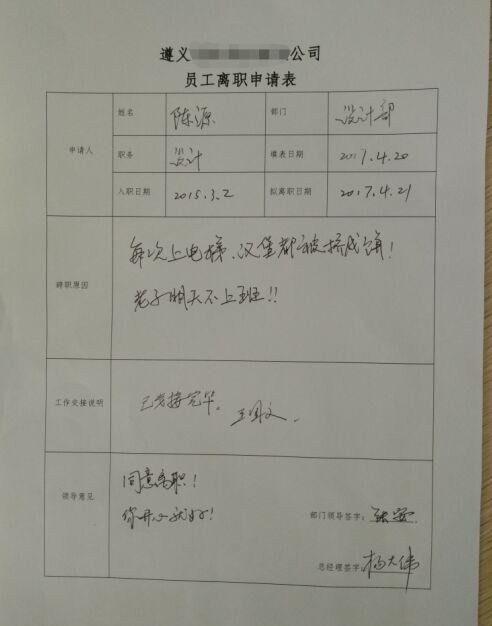 遵义 公司
员工离职申请表
申请人
姓名 陈源 部门 设计部
职务 设计 填表日期 2017.4.20
入职日期 2015.3.2 拟离职日期 2017.4.21
辞职原因
每次上电梯、汉堡都被挤成饼!
老子明天不上班!!
工作交接说明
已交接完毕。
领导意见
同意离职!
你开心就好!
部门领导签字:
总经理签字: 杨大伟